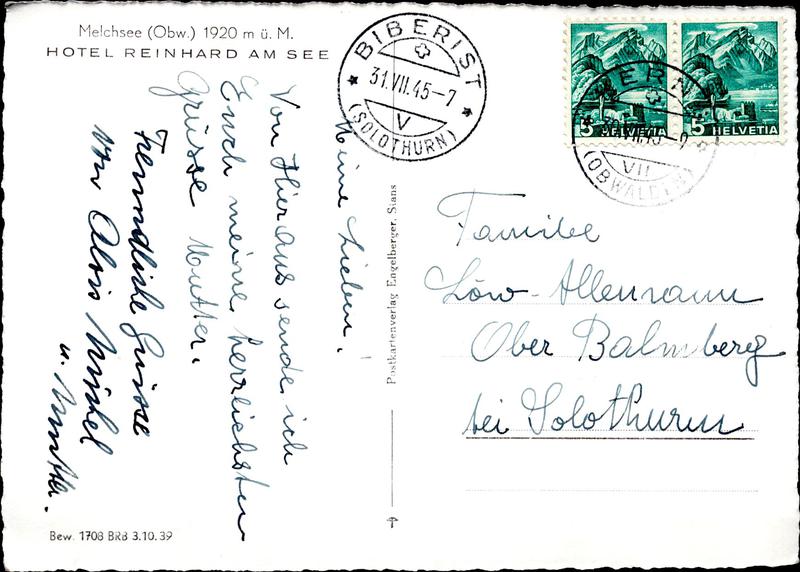 Melchsee (Obw.) 1920 m ü. M.
HOTEL REINHARD AM SEE
Meine Lieben!
Von Hieraus sende ich
Euch meine herzlichsten
Grüsse Mutter.
Freundliche Grüsse
von Alois
u. Mutter.
Bew. 1708 BRB 3.10.39
Postkartenverlag Engelberger, Stans
BIBERIST
31.VII.45-7
V
(SOLOTHURN)
5 HELVETIA
5 HELVETIA
VII
(OBWALDEN)
Familie
Löw-Allemann
Ober Balmberg
bei Solothurn